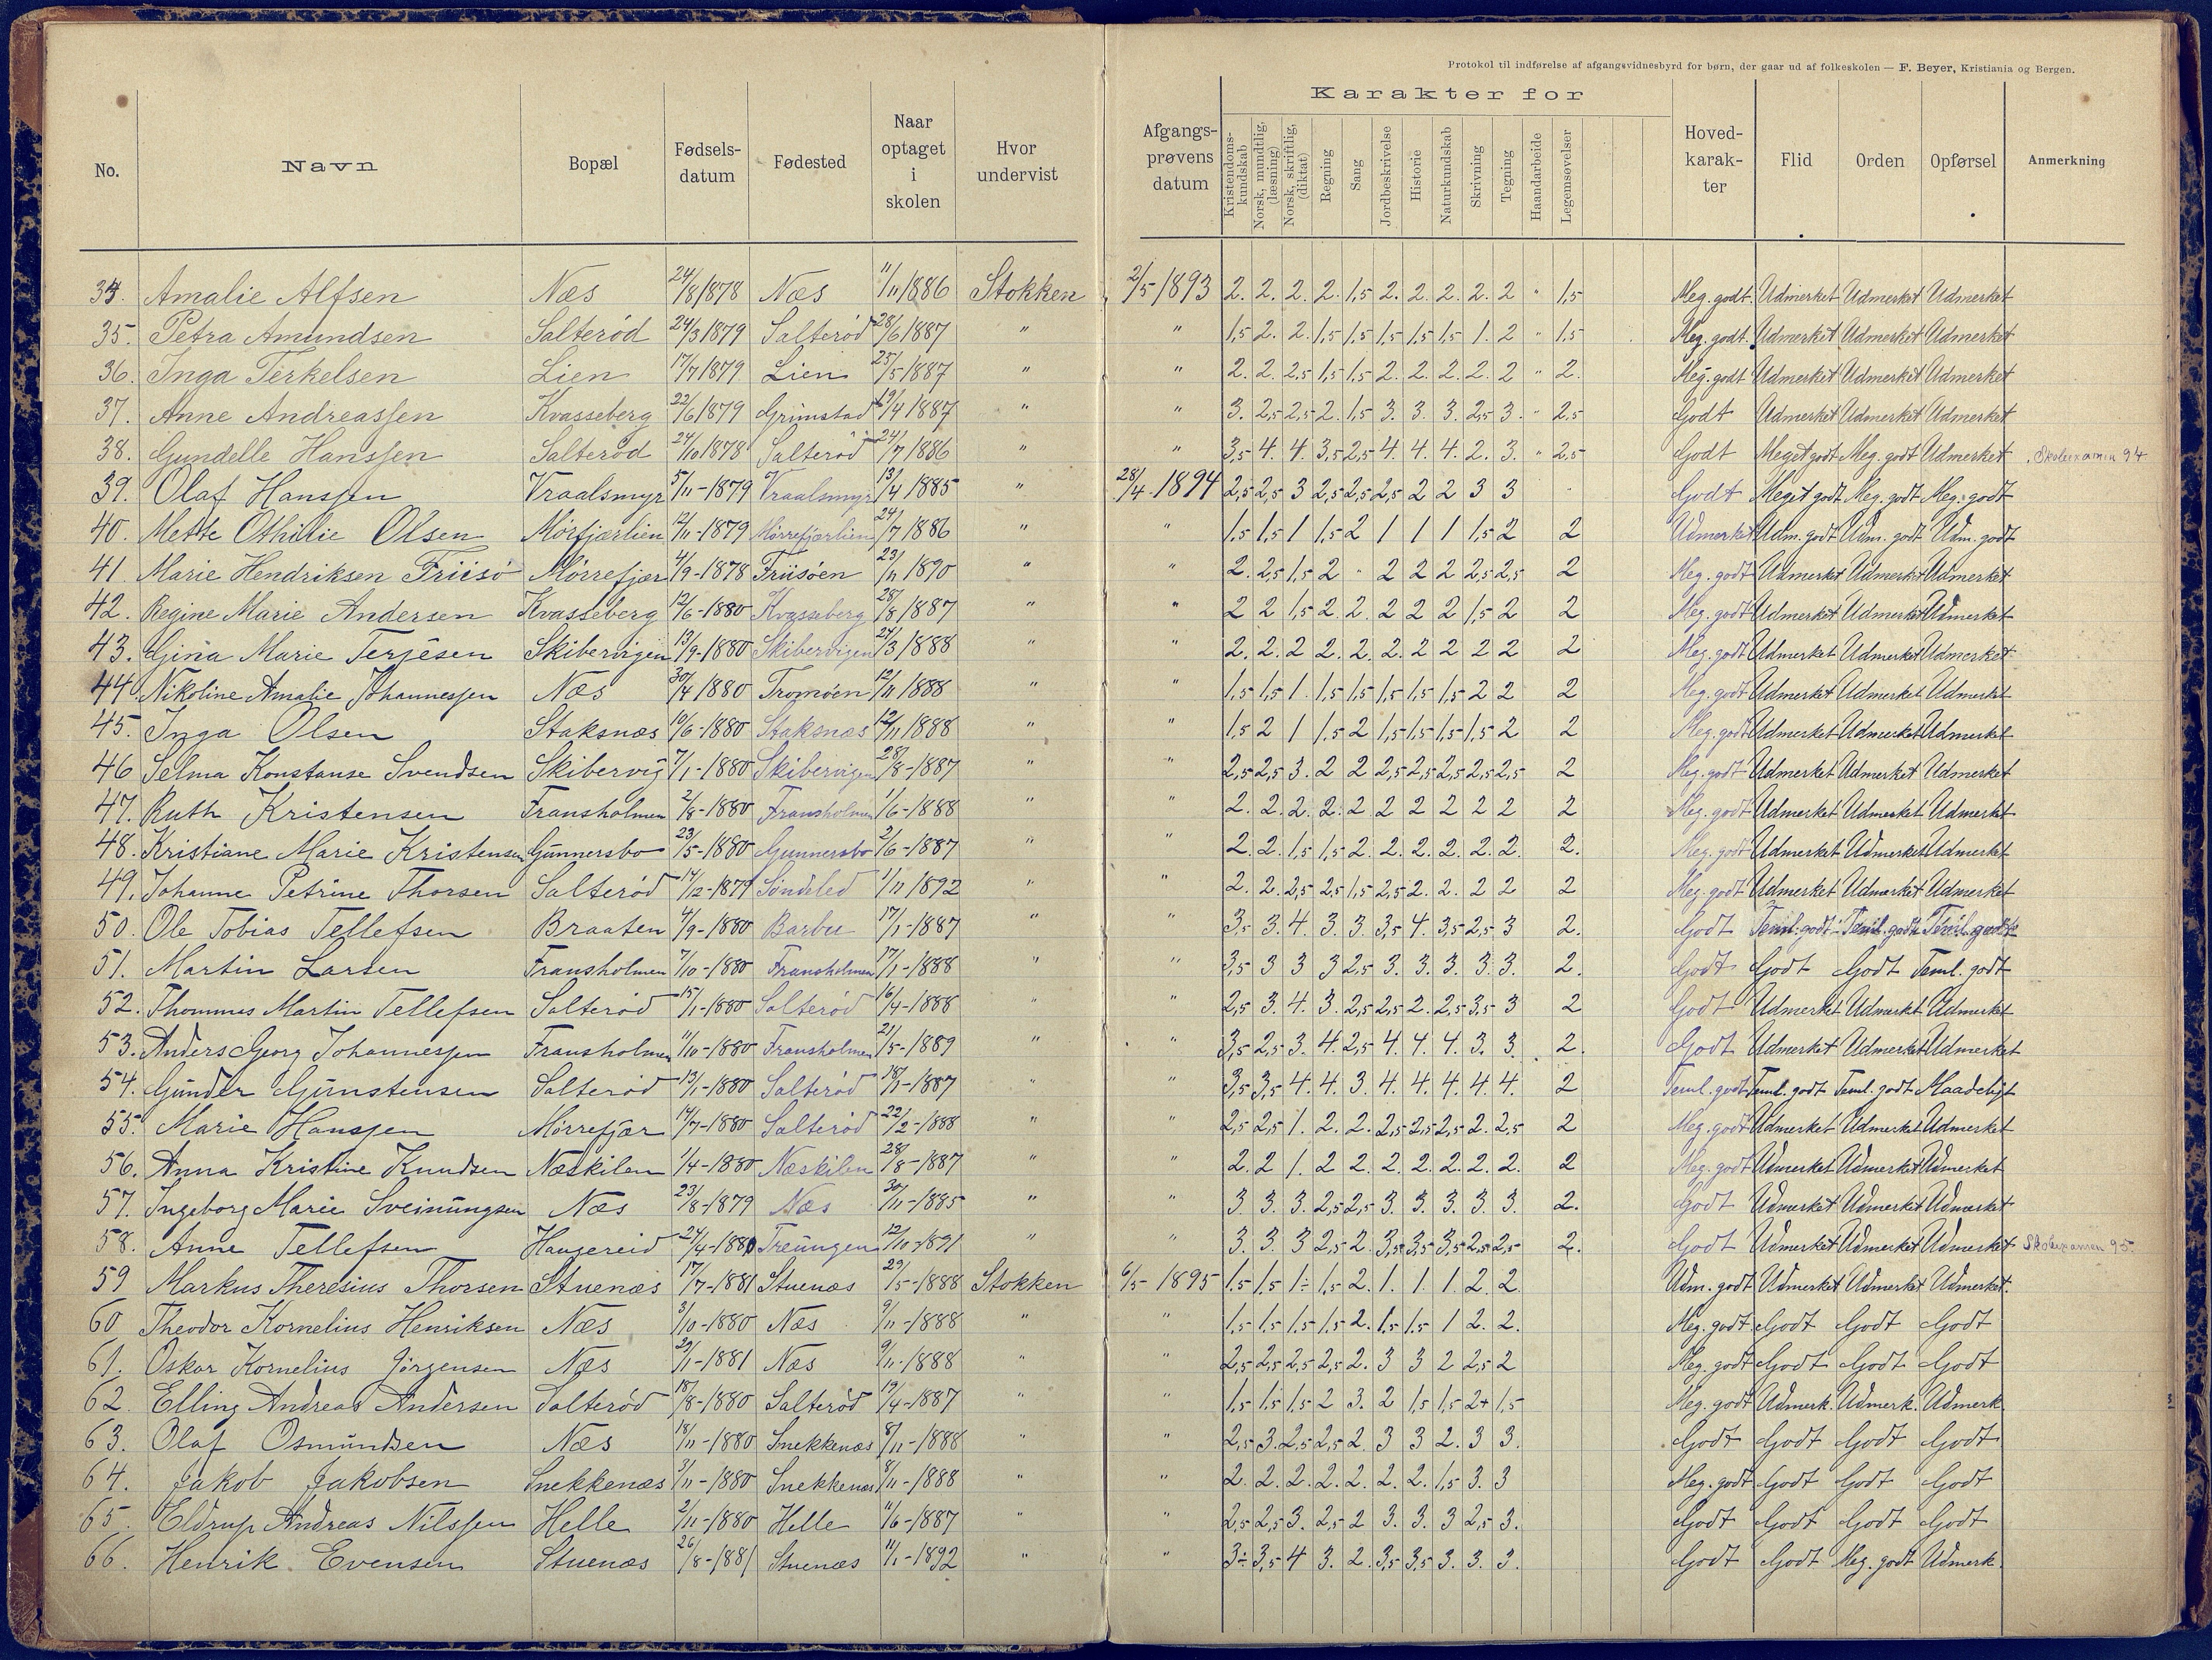 Protokol til indførelse af afgangsvidnesbyrd for børn, der gaar ud af folkeskolen — F. Beyer, Kristiania og Bergen.
Karakter for
No. Navn Bopæl Fødsels-datum Fødested Naar optaget i skolen Hvor undervist Afgangs-prøvens datum Kristendoms-kundskab Norsk, mundtlig, (læsning) Norsk, skriftlig, (diktat) Regning Sang Jordbeskrivelse Historie Naturkundskab Skrivning Tegning Haandarbeide Legemsøvelser Hoved-karak-ter Flid Orden Opførsel Anmerkning
34. Amalie Alfsen Næs 24/8 1878 Næs 11/11 1886 Stokken 2/5 1893 2. 2. 2. 2. 1,5 2. 2. 2. 2. 2 " 1,5 Meg. godt. Udmerket Udmerket Udmerket
35. Petra Amundsen Salterød 24/3 1879 Salterød 28/6 1887 " " 1,5 2. 2. 1,5 1,5 1,5 1,5 1,5 1. 2 " 1,5 Meg. godt. Udmerket Udmerket Udmerket
36. Inga Terkelsen Lien 17/7 1879 Lien 25/5 1887 " " 2. 2. 2,5 1,5 1,5 2. 2. 2. 2. 2 " 2. Meg. godt Udmerket Udmerket Udmerket
37. Anne Andreassen Kvasseberg 22/6 1879 Grimstad 19/4 1887 " " 3. 2,5 2,5 2. 1,5 3. 3. 3. 2,5 3. " 2,5 Godt Udmerket Udmerket Udmerket
38. Gundelle Hanssen Salterød 24/10 1878 Salterød 24/7 1886 " " 3,5 4. 4. 3,5 2,5 4. 4. 4. 2. 3. " 2,5 Godt Meget godt Meg. godt Udmerket Skolexamen 94
39. Olaf Hanssen Vraalsmyr 5/11-1879 Vraalsmyr 13/4 1885 " 28/4 1894 2,5 2,5 3 2,5 2,5 2,5 2 2 3 3 Godt Meget godt Meg. godt Meg. godt
40. Mette Othilie Olsen Mørfjærlien 12/11-1879 Mørrefjærlien 24/7 1886 " " 1,5 1,5 1 1,5 2 1 1 1 1,5 2 2 Udmerket Udm. godt Udm. godt Udm. godt
41. Marie Hendriksen Friisø Mørrefjær 4/9-1878 Friisøen 23/11 1890 " " 2. 2,5 1,5 2 " 2 2 2 2,5 2,5 2 Meg. godt Udmerket Udmerket Udmerket
42. Regine Marie Andersen Kvasseberg 12/6-1880 Kvasseberg 28/8 1887 " " 2 2 1,5 2. 2. 2 2 2 1,5 2 2 Meg. godt Udmerket Udmerket Udmerket
43. Gina Marie Terjesen Skibervigen 13/9-1880 Skibervigen 24/3 1888 " " 2. 2. 2 2. 2. 2. 2 2 2 2 2 Meg. godt Udmerket Udmerket Udmerket
44. Nikoline Amalie Johannessen Næs 30/4 1880 Tromøen 12/11 1888 " " 1,5 1,5 1. 1,5 1,5 1,5 1,5 1,5 2 2 2 Meg. godt Udmerket Udmerket Udmerket
45. Inga Olsen Staksnæs 10/6-1880 Staksnæs 12/11 1888 " " 1,5 2 1 1,5 2 1,5 1,5 1,5 1,5 2 2 Meg. godt Udmerket Udmerket Udmerket
46 Selma Konstanse Svendsen Skibervig 7/1-1880 Skibervigen 28/8-1887 " " 2,5 2,5 3. 2 2 2,5 2,5 2,5 2,5 2,5 2 Meg. godt Udmerket Udmerket Udmerket
47. Ruth Kristensen Fransholmen 2/8-1880 Fransholmen 1/6-1888 " " 2. 2. 2. 2. 2 2 2 2 2 2 2 Meg. godt Udmerket Udmerket Udmerket
48. Kristiane Marie Kristensen Gunnersbo 23/5-1880 Gunnersbo 2/6-1887 " " 2. 2. 1,5 1,5 2. 2. 2. 2. 2. 2. 2. Meg. godt Udmerket Udmerket Udmerket
49. Johanne Petrine Thorsen Salterød 14/12-1879 Søndeled 1/11 1892 " " 2. 2. 2,5 2,5 1,5 2,5 2. 2. 2 2 2 Meg. godt Udmerket Udmerket Udmerket
50. Ole Tobias Tellefsen Braaten 4/9-1880 Barbu 17/1-1887 " " 3,5 3. 4. 3. 3. 3,5 4. 3,5 2,5 3 2. Godt Teml. godt Teml. godt Teml. godt
51. Martin Larsen Fransholmen 7/10-1880 Fransholmen 17/1-1888 " " 3,5 3 3 3 2,5 3. 3. 3. 3. 3. 2. Godt Godt Godt Teml. godt
52. Thommes Martin Tellefsen Salterød 15/1-1880 Salterød 16/4-1888 " " 2,5 3. 4. 3. 2,5 2,5 2. 2,5 3,5 3 2 Godt Udmerket Udmerket Udmerket
53. Anders Georg Johannessen Fransholmen 11/10-1880 Fransholmen 21/5-1889 " " 3,5 2,5 3. 4. 2,5 4. 4. 4. 3. 3. 2. Godt Udmerket Udmerket Udmerket
54. Gunder Gunstensen Salterød 13/1-1880 Salterød 18/1-1887 " " 3,5 3,5 4. 4. 3 4. 4. 4. 4. 4. 2 Teml. godt Teml. godt Teml. godt Maadeligt
55. Marie Hanssen Mørrefjær 14/7-1880 Salterød 22/2-1888 " " 2,5 2,5 1. 2. 2. 2,5 2,5 2,5 2. 2,5 2 Meg. godt Udmerket Udmerket Udmerket
56. Anna Kristine Knudsen Næskilen 1/4-1880 Næskilen 28/8-1887 " " 2. 2 1. 2 2. 2. 2. 2. 2. 2. 2 Meg. godt Udmerket Udmerket Udmerket
57. Ingeborg Marie Sveinungsen Næs 23/8-1879 Næs 30/11-1885 " " 3 3. 3. 2,5 2,5 3. 3. 3. 3. 3. 2. Godt Udmerket Udmerket Udmerket
58. Anne Tellefsen Haugereid 24/4-1880 Treungen 12/10-1891 " " 3. 3. 3 2,5 2. 3,5 3,5 3,5 2,5 2,5 2. Godt Udmerket Udmerket Udmerket Skolexamen 95.
59 Markus Theresius Thorsen Stuenæs 17/7-1881 Stuenæs 29/5-1888 Stokken 6/5-1895 1,5 1,5 1÷ 1,5 2. 1. 1. 1. 2 2. Udm. godt Udmerket Udmerket Udmerket.
60 Theodor Kornelius Henriksen Næs 3/10-1880 Næs 9/11-1888 " " 1,5 1,5 1,5 1,5 2. 1,5 1,5 1 2. 2. Meg. godt Godt Godt Godt
61. Oskar Kornelius Jørgensen Næs 29/1-1881 Næs 9/11-1888 " " 2,5 2,5 2,5 2,5 2. 3 3 2 2,5 2 Meg. godt Godt Godt Godt
62. Elling Andreas Andersen Salterød 18/8-1880 Salterød 19/4-1887 " " 1,5 1,5 1,5 2 3. 2 1,5 1,5 2+ 1,5 Meg. godt Udmerk. Udmerk. Udmerk.
63. Olaf Osmundsen Næs 18/11-1880 Snekkenæs 8/11-1888 " " 2,5 3. 2,5 2,5 2. 3 3 2. 3 3. Godt Godt Godt Godt
64. Jakob Jakobsen Snekkenæs 3/11-1880 Snekkenæs 8/11-1888 " " 2. 2. 2. 2. 2. 2. 2. 1,5 3. 3 Meg. godt Godt Godt Godt
65. Eldrup Andreas Nilssen Helle 2/11-1880 Helle 11/6-1887 " " 2,5 2,5 3. 2,5 2 3. 3. 3 2,5 3. Godt Godt Godt Godt
66. Henrik Evensen Stuenæs 26/8-1881 Stuenæs 11/1-1892 " " 3÷ 3,5 4 3. 2. 3,5 3,5 3. 3. 3. Godt Godt Meg. godt Udmerk.